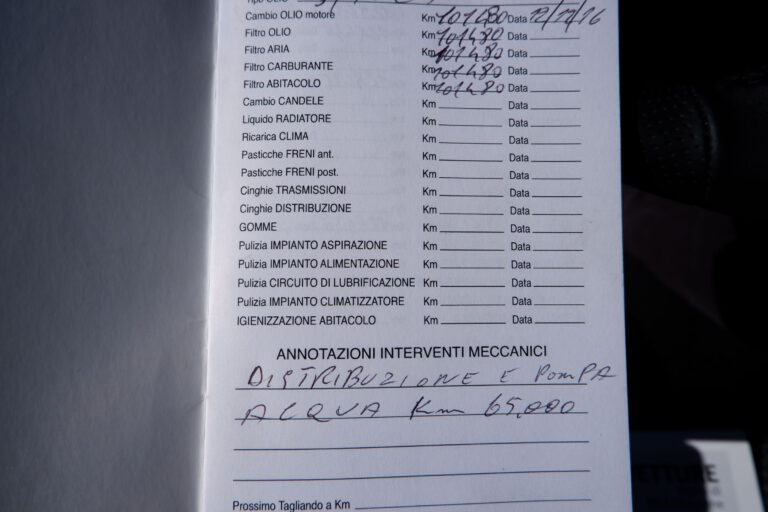 Tipo OLIO
Cambio OLIO motore Km 101480 Data 12/11/16
Filtro OLIO Km 101480 Data
Filtro ARIA Km 101480 Data
Filtro CARBURANTE Km 101480 Data
Filtro ABITACOLO Km 101480 Data
Cambio CANDELE Km Data
Liquido RADIATORE Km Data
Ricarica CLIMA Km Data
Pasticche FRENI ant. Km Data
Pasticche FRENI post. Km Data
Cinghie TRASMISSIONI Km Data
Cinghie DISTRIBUZIONE Km Data
GOMME Km Data
Pulizia IMPIANTO ASPIRAZIONE Km Data
Pulizia IMPIANTO ALIMENTAZIONE Km Data
Pulizia CIRCUITO DI LUBRIFICAZIONE Km Data
Pulizia IMPIANTO CLIMATIZZATORE Km Data
IGIENIZZAZIONE ABITACOLO Km Data
ANNOTAZIONI INTERVENTI MECCANICI
DISTRIBUZIONE E POMPA
ACQUA Km 65,000
Prossimo Tagliando a Km
ETTURE